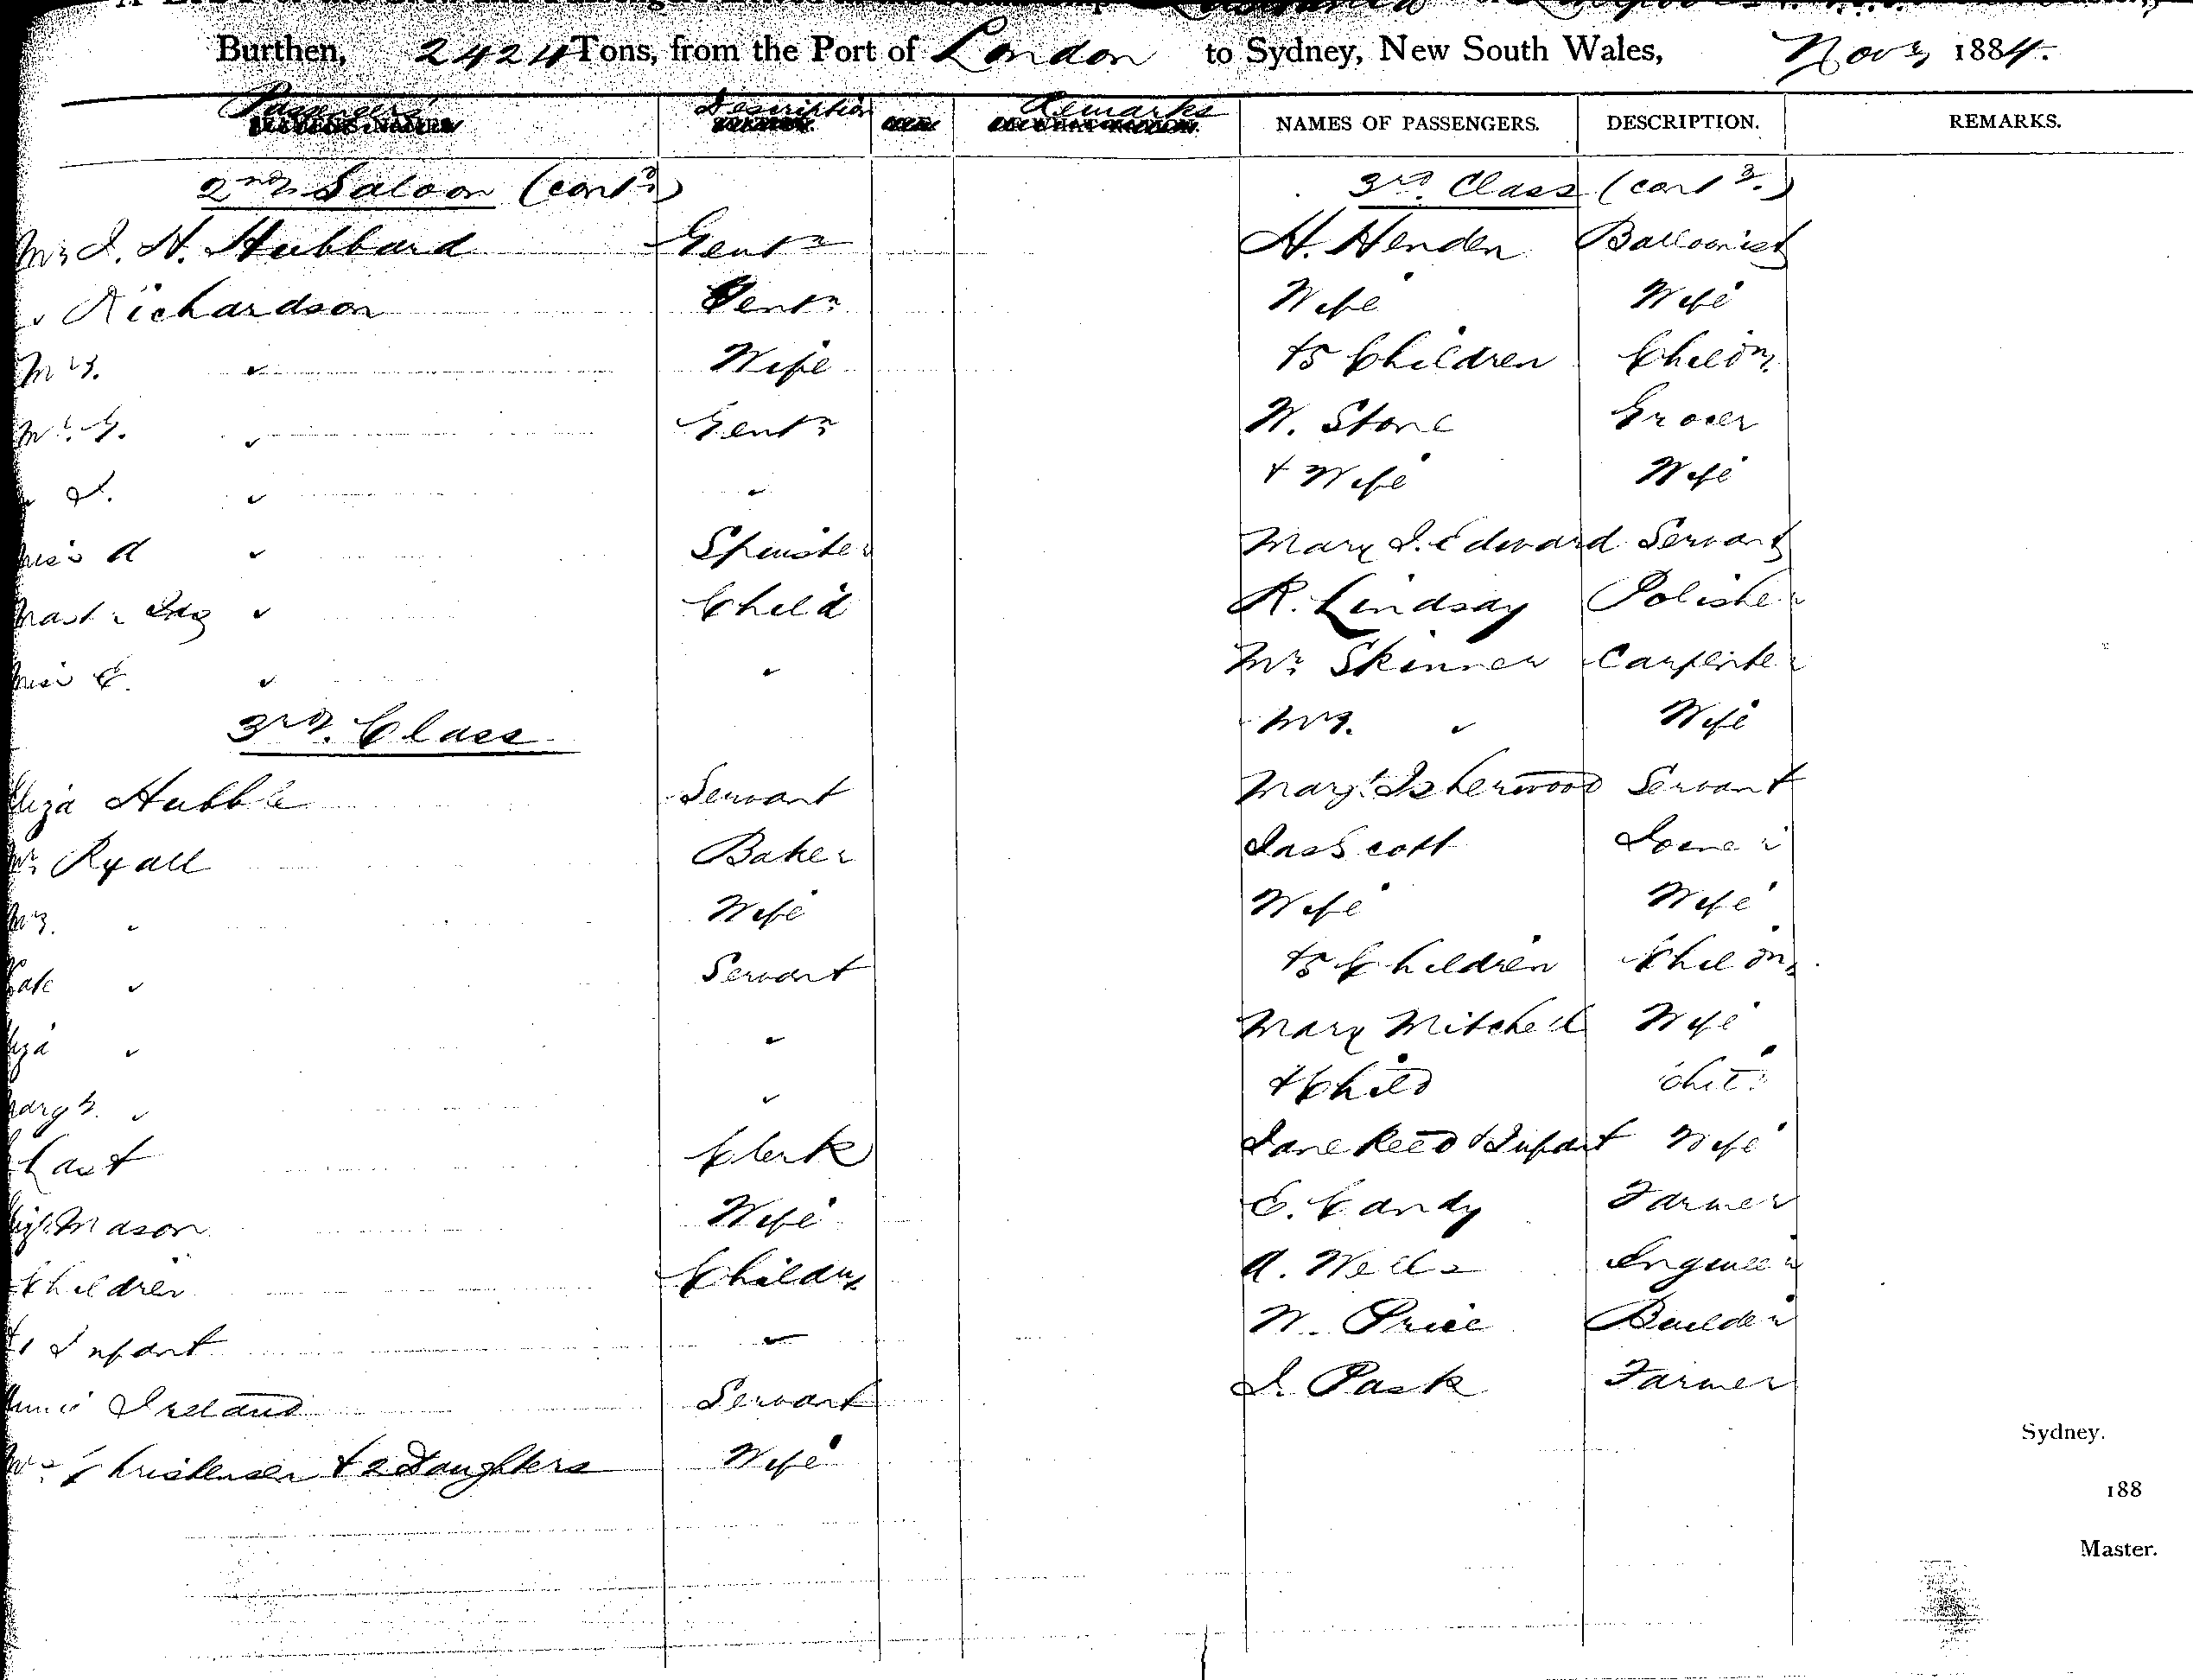 Burthen, 2424 Tons, from the Port of London to Sydney, New South Wales, Novr 1884.
Passengers' Description Remarks NAMES OF PASSENGERS. DESCRIPTION. REMARKS.
2nd Saloon (contd)
Mr J. H. Hubbard Gentn
" Richardson Gentn
Mrs. " Wife
Mr. G. " Gentn
" J. " "
Miss A " Spinster
Mastr " Child
Miss E. " "
3rd. Class
Eliza Hubble Servant
Mr Ryall Baker
Mrs. " Wife
Kate " Servant
Eliza " "
Margt. " "
Clerk
Mason Wife
Children Childn
+ 1 Infant "
Annie Ireland Servant
Mrs Christensen + 2 Daughters Wife
3rd. Class (contd.)
H. Henden Balloonist
Wife Wife
+ 5 Children Childn.
W. Stone Grocer
+ Wife Wife
Mary J. Edward Servant
R. Lindsay Polisher
Mr Skinner Carpenter
Mrs. " Wife
Margt Isherwood Servant
Jas Scott Joiner
Wife Wife
+ 5 Children Childn.
Mary Mitchell Wife
+ Child Child
Jane Reed + Infant Wife
E. Candy Farmer
A. Wells Engineer
W. Price Builder
J. Pask Farmer
Sydney.
188
Master.